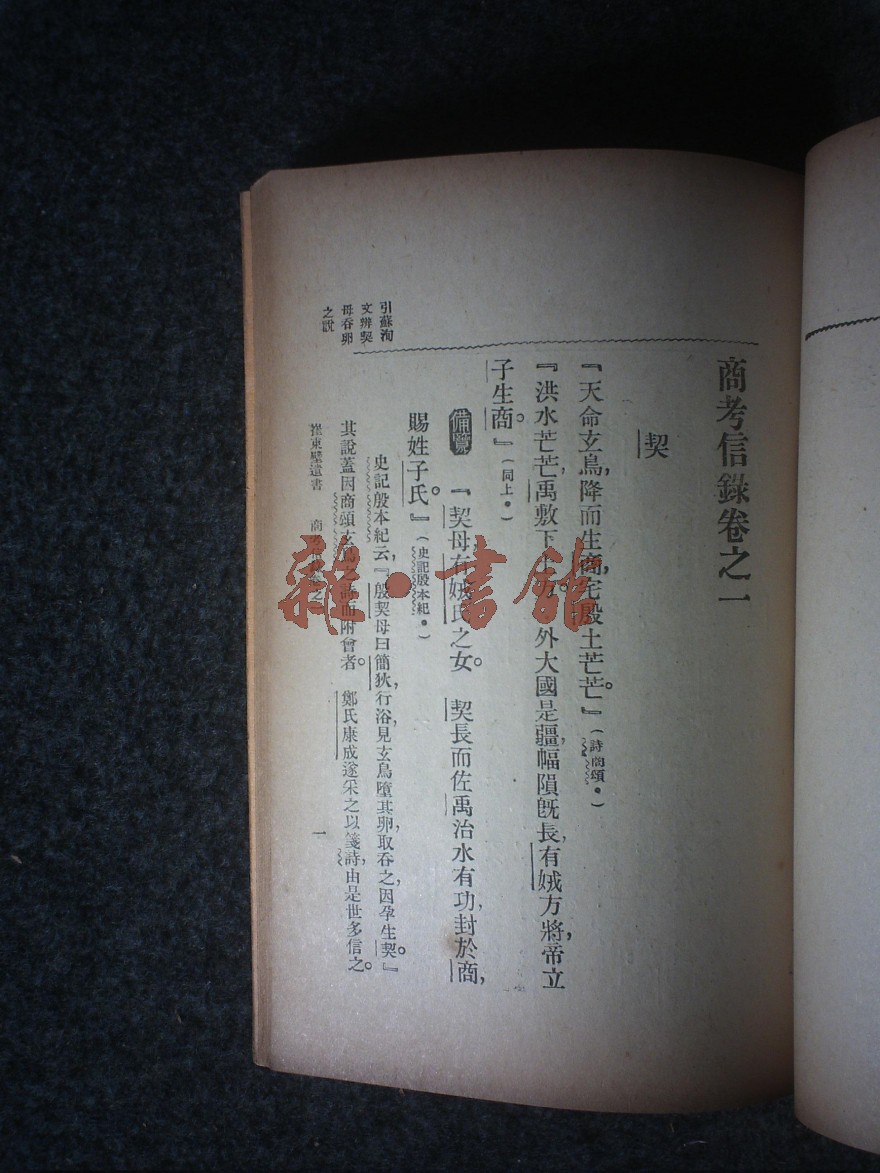 商考信錄卷之一
契
『天命玄鳥,降而生商,宅殷土芒芒。』(詩商頌•)
『洪水芒芒,禹敷下土方。外大國是疆,幅隕旣長,有娀方將,帝立
子生商。』(同上•)
備覽 『契母有娀氏之女。 契長而佐禹治水有功,封於商,
賜姓子氏。』(史記殷本紀•)
史記殷本紀云,『殷契母曰簡狄,行浴,見玄鳥墮其卵,取吞之,因孕生契。』
其說蓋因商頌玄鳥之詩而附會者。 鄭氏康成遂采之以箋詩,由是世多信之。
引蘇洵
文辨契
母吞卵
之說
崔東壁遺書 商考信錄卷之一 一
雜·書館